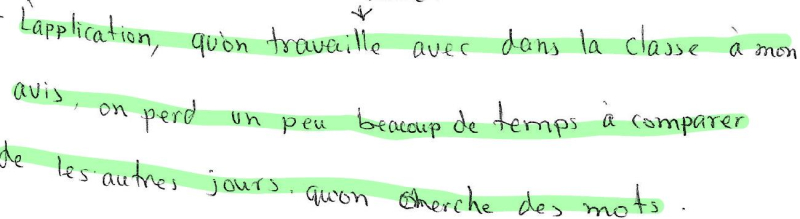 - L'application, qu'on travaille avec dans la classe à mon
avis, on perd un peu beaucoup de temps à comparer
de les autres jours. qu'on cherche des mots.